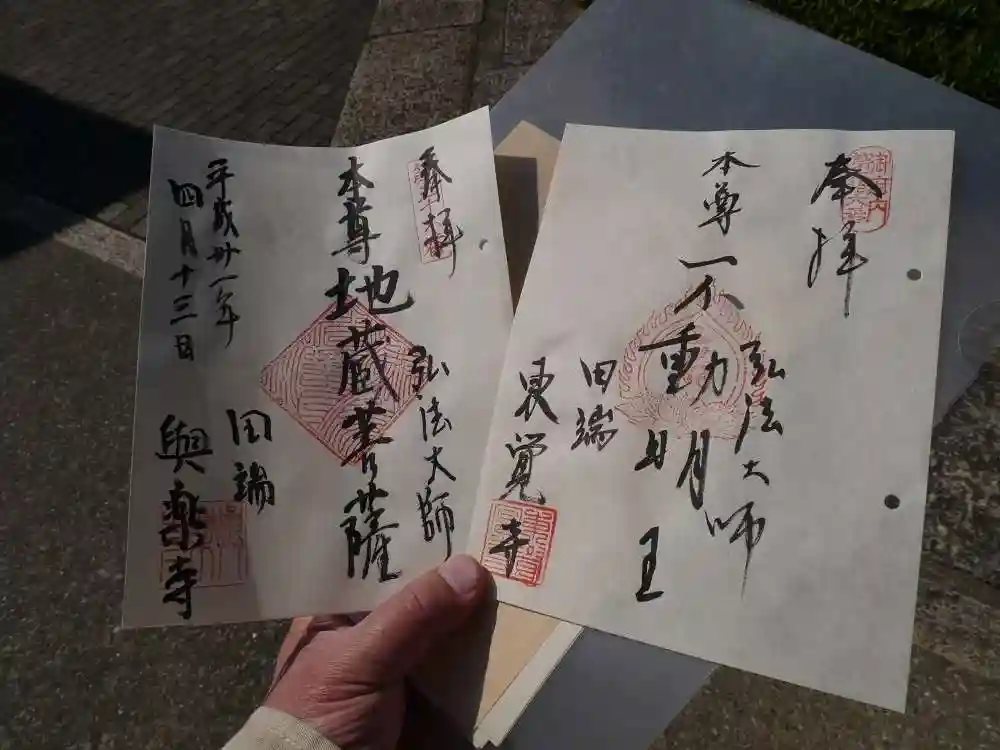 奉拝
弘法大師
本尊地蔵菩薩
平成卅一年
四月十三日
田端
與楽寺
奉拝
弘法大師
本尊不動明王
田端
東覚寺